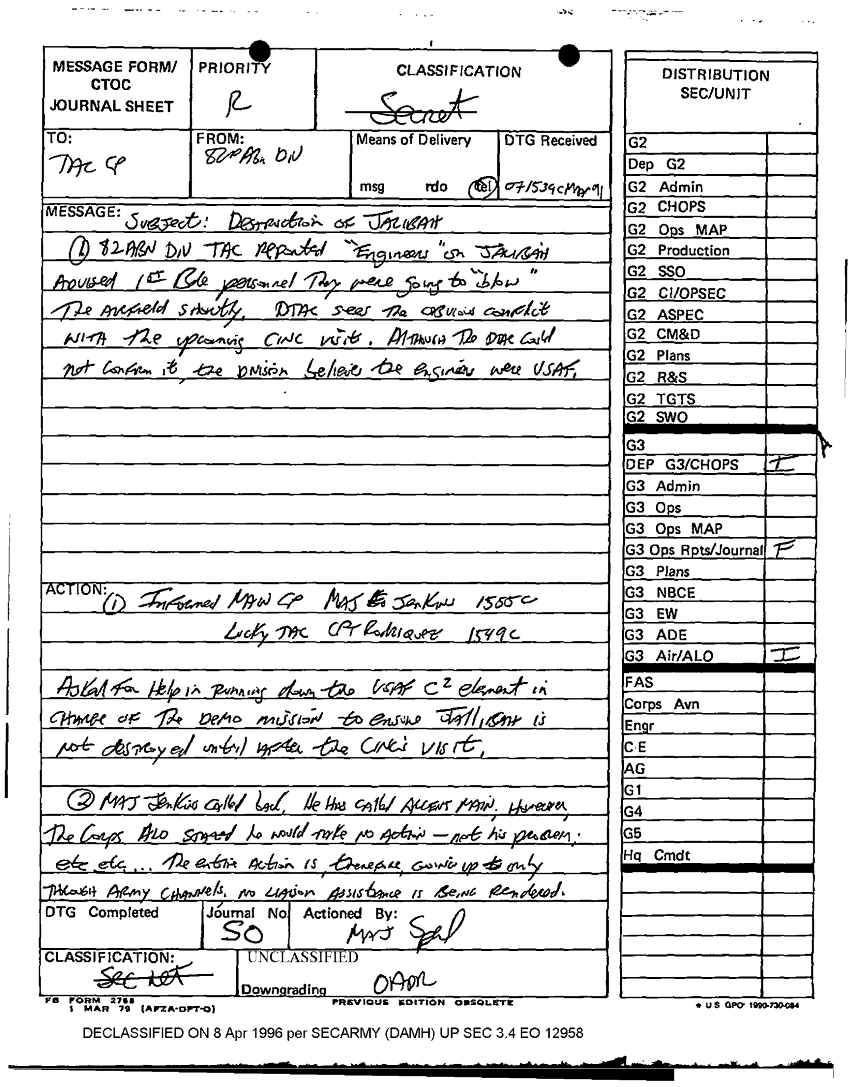 MESSAGE FORM/
CTOC
JOURNAL SHEET
PRIORITY
R
CLASSIFICATION
Secret
TO:
TAC CP
FROM:
82nd Abn Div
Means of Delivery
msg rdo tel
DTG Received
071539CMar91
MESSAGE: Subject: Destruction of JALIBAH
(1) 82 ABN DIV TAC reported "Engineers" on JALIBAH
Advised 1st Bde personnel They were going to "blow"
The Airfield shortly. DTAC sees The obvious conflict
with The upcoming CINC visit. Although The DTAC Could
not confirm it, the Division believes the engineers were USAF.
ACTION: (1) Informed MAIN CP MAJ Jenkins 1555C
Lucky TAC CPT Rodriquez 1549C
Asked For Help in running down the USAF C2 element in
CHARGE OF The Demo mission to ensure JALLIBAH is
not destroyed until after the CINC's VISIT.
(2) MAJ Jenkins called back. He Has called ALLENS MAIN. However,
The Corps ALO stated he would take no Action - not his problem;
etc etc... The entire Action is, therefore, going up to only
Through Army Channels. no Liaison Assistance is Being Rendered.
DTG Completed
Journal No
50
Actioned By:
MAJ
CLASSIFICATION:
Secret
UNCLASSIFIED
Downgrading OADR
FB FORM 2768
1 MAR 79 (AFZA-DPT-O)
PREVIOUS EDITION OBSOLETE
DISTRIBUTION
SEC/UNIT
G2
Dep G2
G2 Admin
G2 CHOPS
G2 Ops MAP
G2 Production
G2 SSO
G2 CI/OPSEC
G2 ASPEC
G2 CM&D
G2 Plans
G2 R&S
G2 TGTS
G2 SWO
G3
DEP G3/CHOPS I
G3 Admin
G3 Ops
G3 Ops MAP
G3 Ops Rpts/Journal F
G3 Plans
G3 NBCE
G3 EW
G3 ADE
G3 Air/ALO I
FAS
Corps Avn
Engr
CE
AG
G1
G4
G5
Hq Cmdt
* US GPO 1990-730-084
DECLASSIFIED ON 8 Apr 1996 per SECARMY (DAMH) UP SEC 3.4 EO 12958